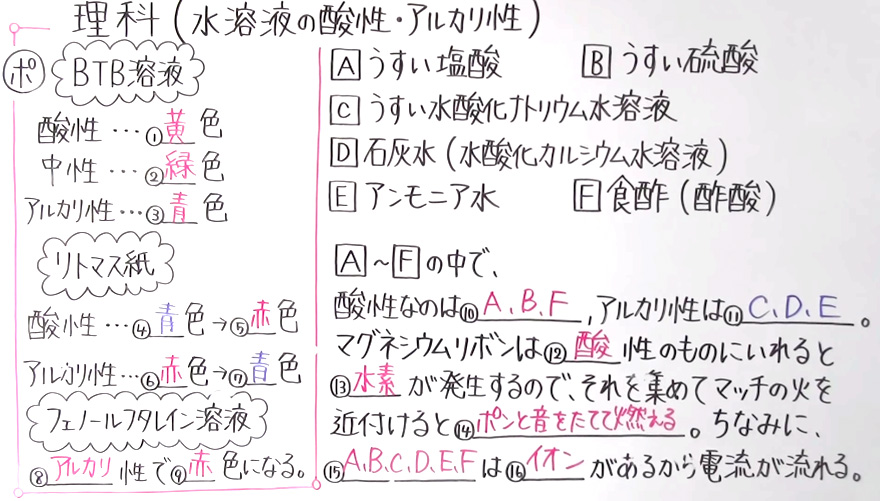 理科(水溶液の酸性・アルカリ性)
ポ BTB溶液
酸性…①黄色
中性…②緑色
アルカリ性…③青色
リトマス紙
酸性…④青色→⑤赤色
アルカリ性…⑥赤色→⑦青色
フェノールフタレイン溶液
⑧アルカリ性で⑨赤色になる。
A うすい塩酸 B うすい硫酸
C うすい水酸化ナトリウム水溶液
D 石灰水(水酸化カルシウム水溶液)
E アンモニア水 F 食酢(酢酸)
A~Fの中で、
酸性なのは⑩A、B、F,アルカリ性は⑪C、D、E。
マグネシウムリボンは⑫酸性のものにいれると
⑬水素が発生するので、それを集めてマッチの火を
近付けると⑭ポンと音をたてて燃える。ちなみに、
⑮A、B、C、D、E、Fは⑯イオンがあるから電流が流れる。